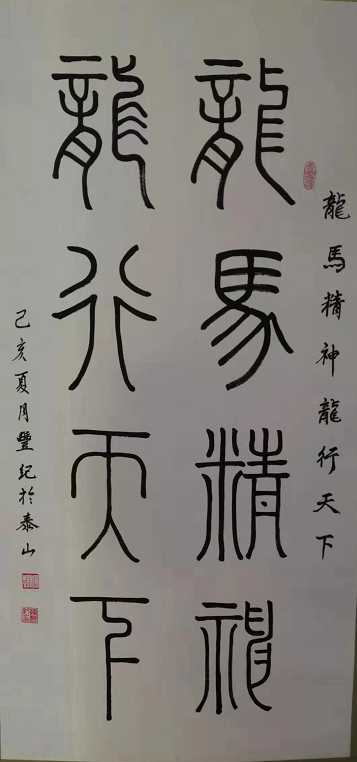 龍馬精神龍行天下
龍馬精神
龍行天下
己亥夏月豐紀於泰山